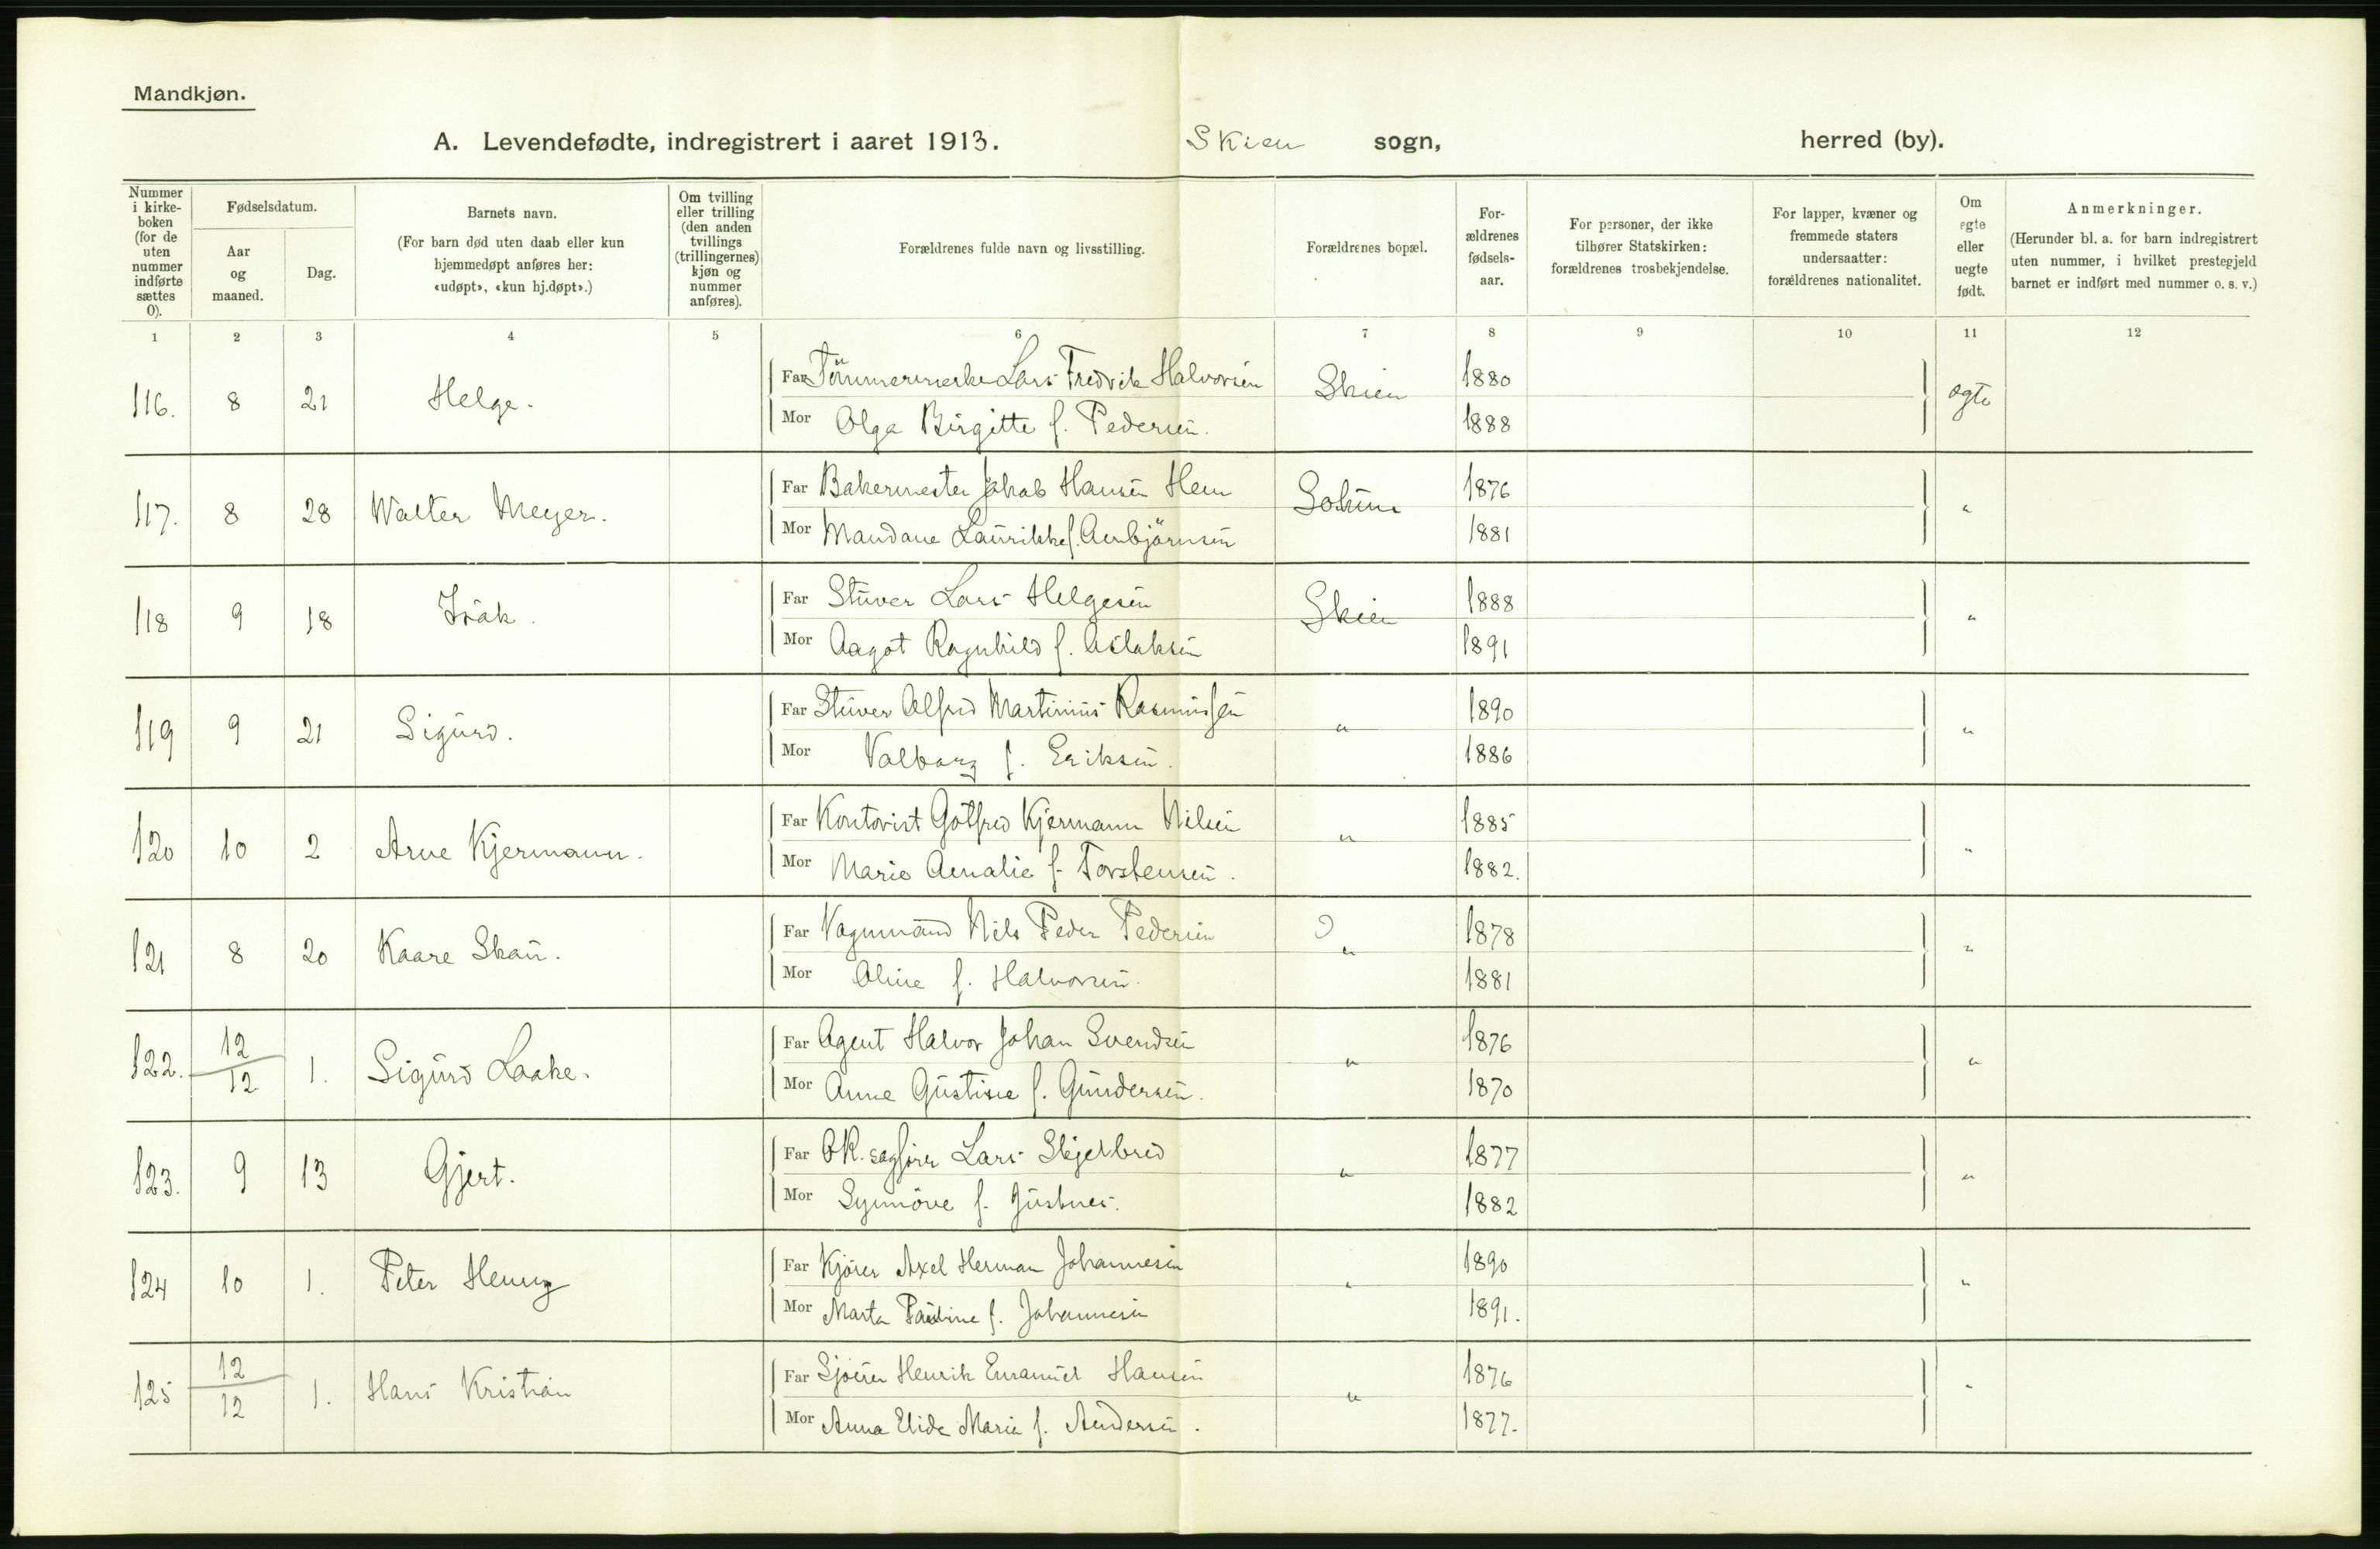 Mandkjøn.
A. Levendefødte, indregistrert i aaret 1913. Skien sogn, herred (by).
Nummer i kirke-boken (for de uten nummer indførte sættes 0).
Fødselsdatum.
Aar og maaned.
Dag.
Barnets navn.
(For barn død uten daab eller kun hjemmedøpt anføres her: «udøpt», «kun hj.døpt».)
Om tvilling eller trilling (den anden tvillings (trillingernes) kjøn og nummer anføres).
Forældrenes fulde navn og livsstilling.
Forældrenes bopæl.
For-ældrenes fødsels-aar.
For personer, der ikke tilhører Statskirken: forældrenes trosbekjendelse.
For lapper, kvæner og fremmede staters undersaatter: forældrenes nationalitet.
Om egte eller uegte født.
Anmerkninger.
(Herunder bl. a. for barn indregistrert uten nummer, i hvilket prestegjeld barnet er indført med nummer o. s. v.)
1 2 3 4 5 6 7 8 9 10 11 12
116. 8 21 Helge. Far Lars Fredrik Halvorsen Skien 1880 ægte
Mor Olga Birgitte f. Pedersen. 1888
117. 8 28 Walter Meyer. Far Bakermester Jakob Hansen Hem Solum 1876 "
Mor Mandane f. Arnbjörnsen 1881
118 9 18 Isak. Far Stuver Lars Helgesen Skien 1888 "
Mor Aagot Ragnhild f. Aslaksen 1891
119 9 21 Sigurd. Far Stuver Alfred Martinius Rasmussen " 1890 "
Mor Valborg f. Eriksen. 1886
120 10 2 Arne Kjermann. Far Kontorist Gotfred Kjermann Nilsen " 1885 "
Mor Marie Amalie f. Torstensen. 1882.
121 8 20 Kaare Skau. Far Vognmand Nils Peder Pedersen " 1878 "
Mor Aline f. Halvorsen. 1881
122. 12/12 1. Sigurd Laake. Far Agent Halvor Johan Svendsen " 1876 "
Mor Anne Gustine f. Gundersen. 1870
123. 9 13 Gjert. Far O.R. sagfører Lars Skjelbred " 1877 "
Mor Synnöve f. 1882
124 10 1. Peter Henry Far Kjører Axel Herman Johannesen " 1890 "
Mor Marta Pauline f. Johannesen 1891.
125 12/12 1. Hans Kristian Far Henrik Emanuel Hansen " 1876 "
Mor Anna Elida Marie f. Andersen. 1877.